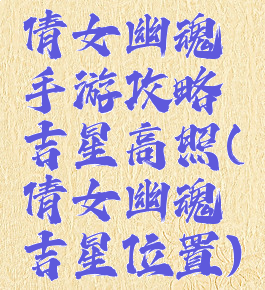 倩女幽魂
手游攻略
吉星高照(
倩女幽魂
吉星位置)